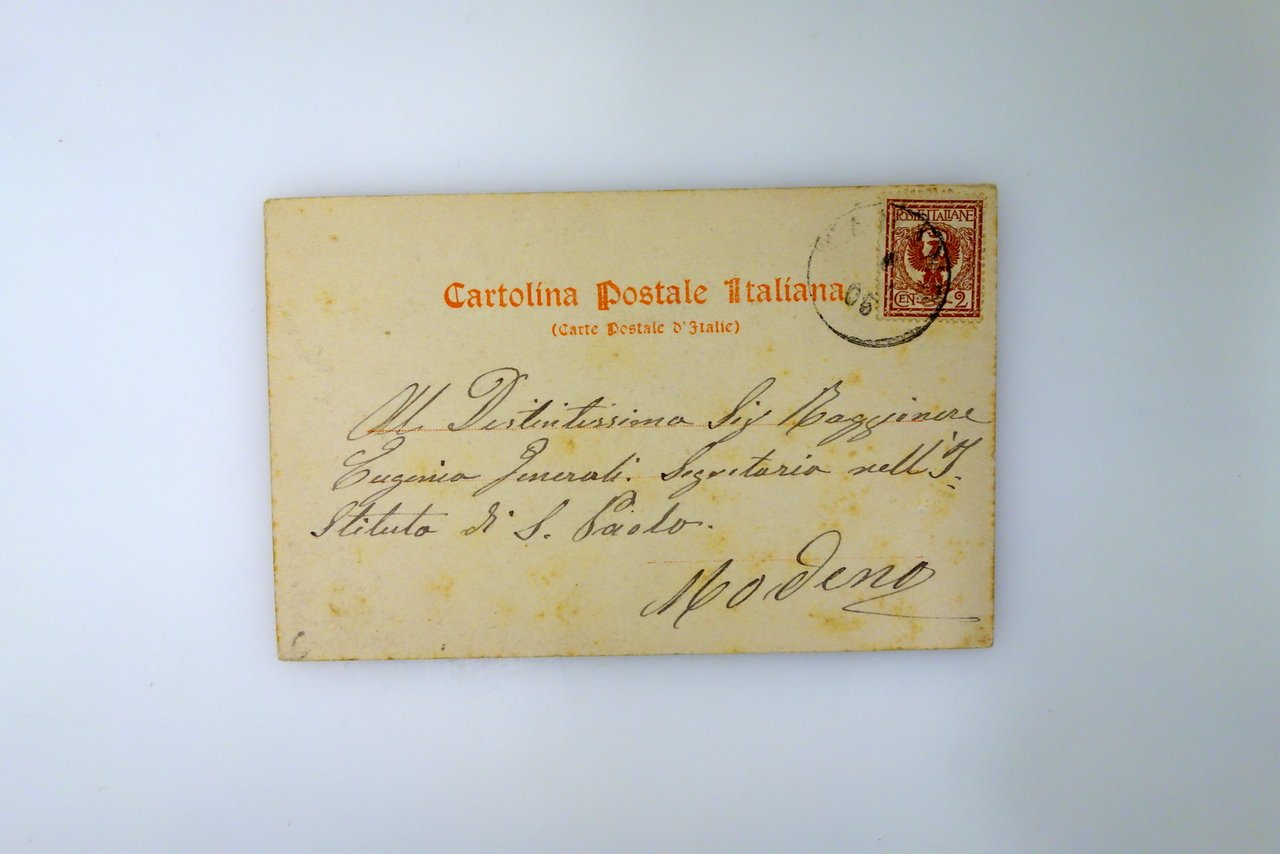 POSTE ITALIANE
CEN. 2
06
Cartolina Postale Italiana
(Carte Postale d'Italie)
Al Distintissimo Sig Raggionere
Eugenio Generali. Segretario nell' I-
stituto di S. Paolo.
Modena